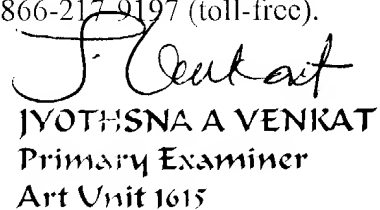 866-217-9197 (toll-free).
J. Venkat
JYOTHSNA A VENKAT
Primary Examiner
Art Unit 1615